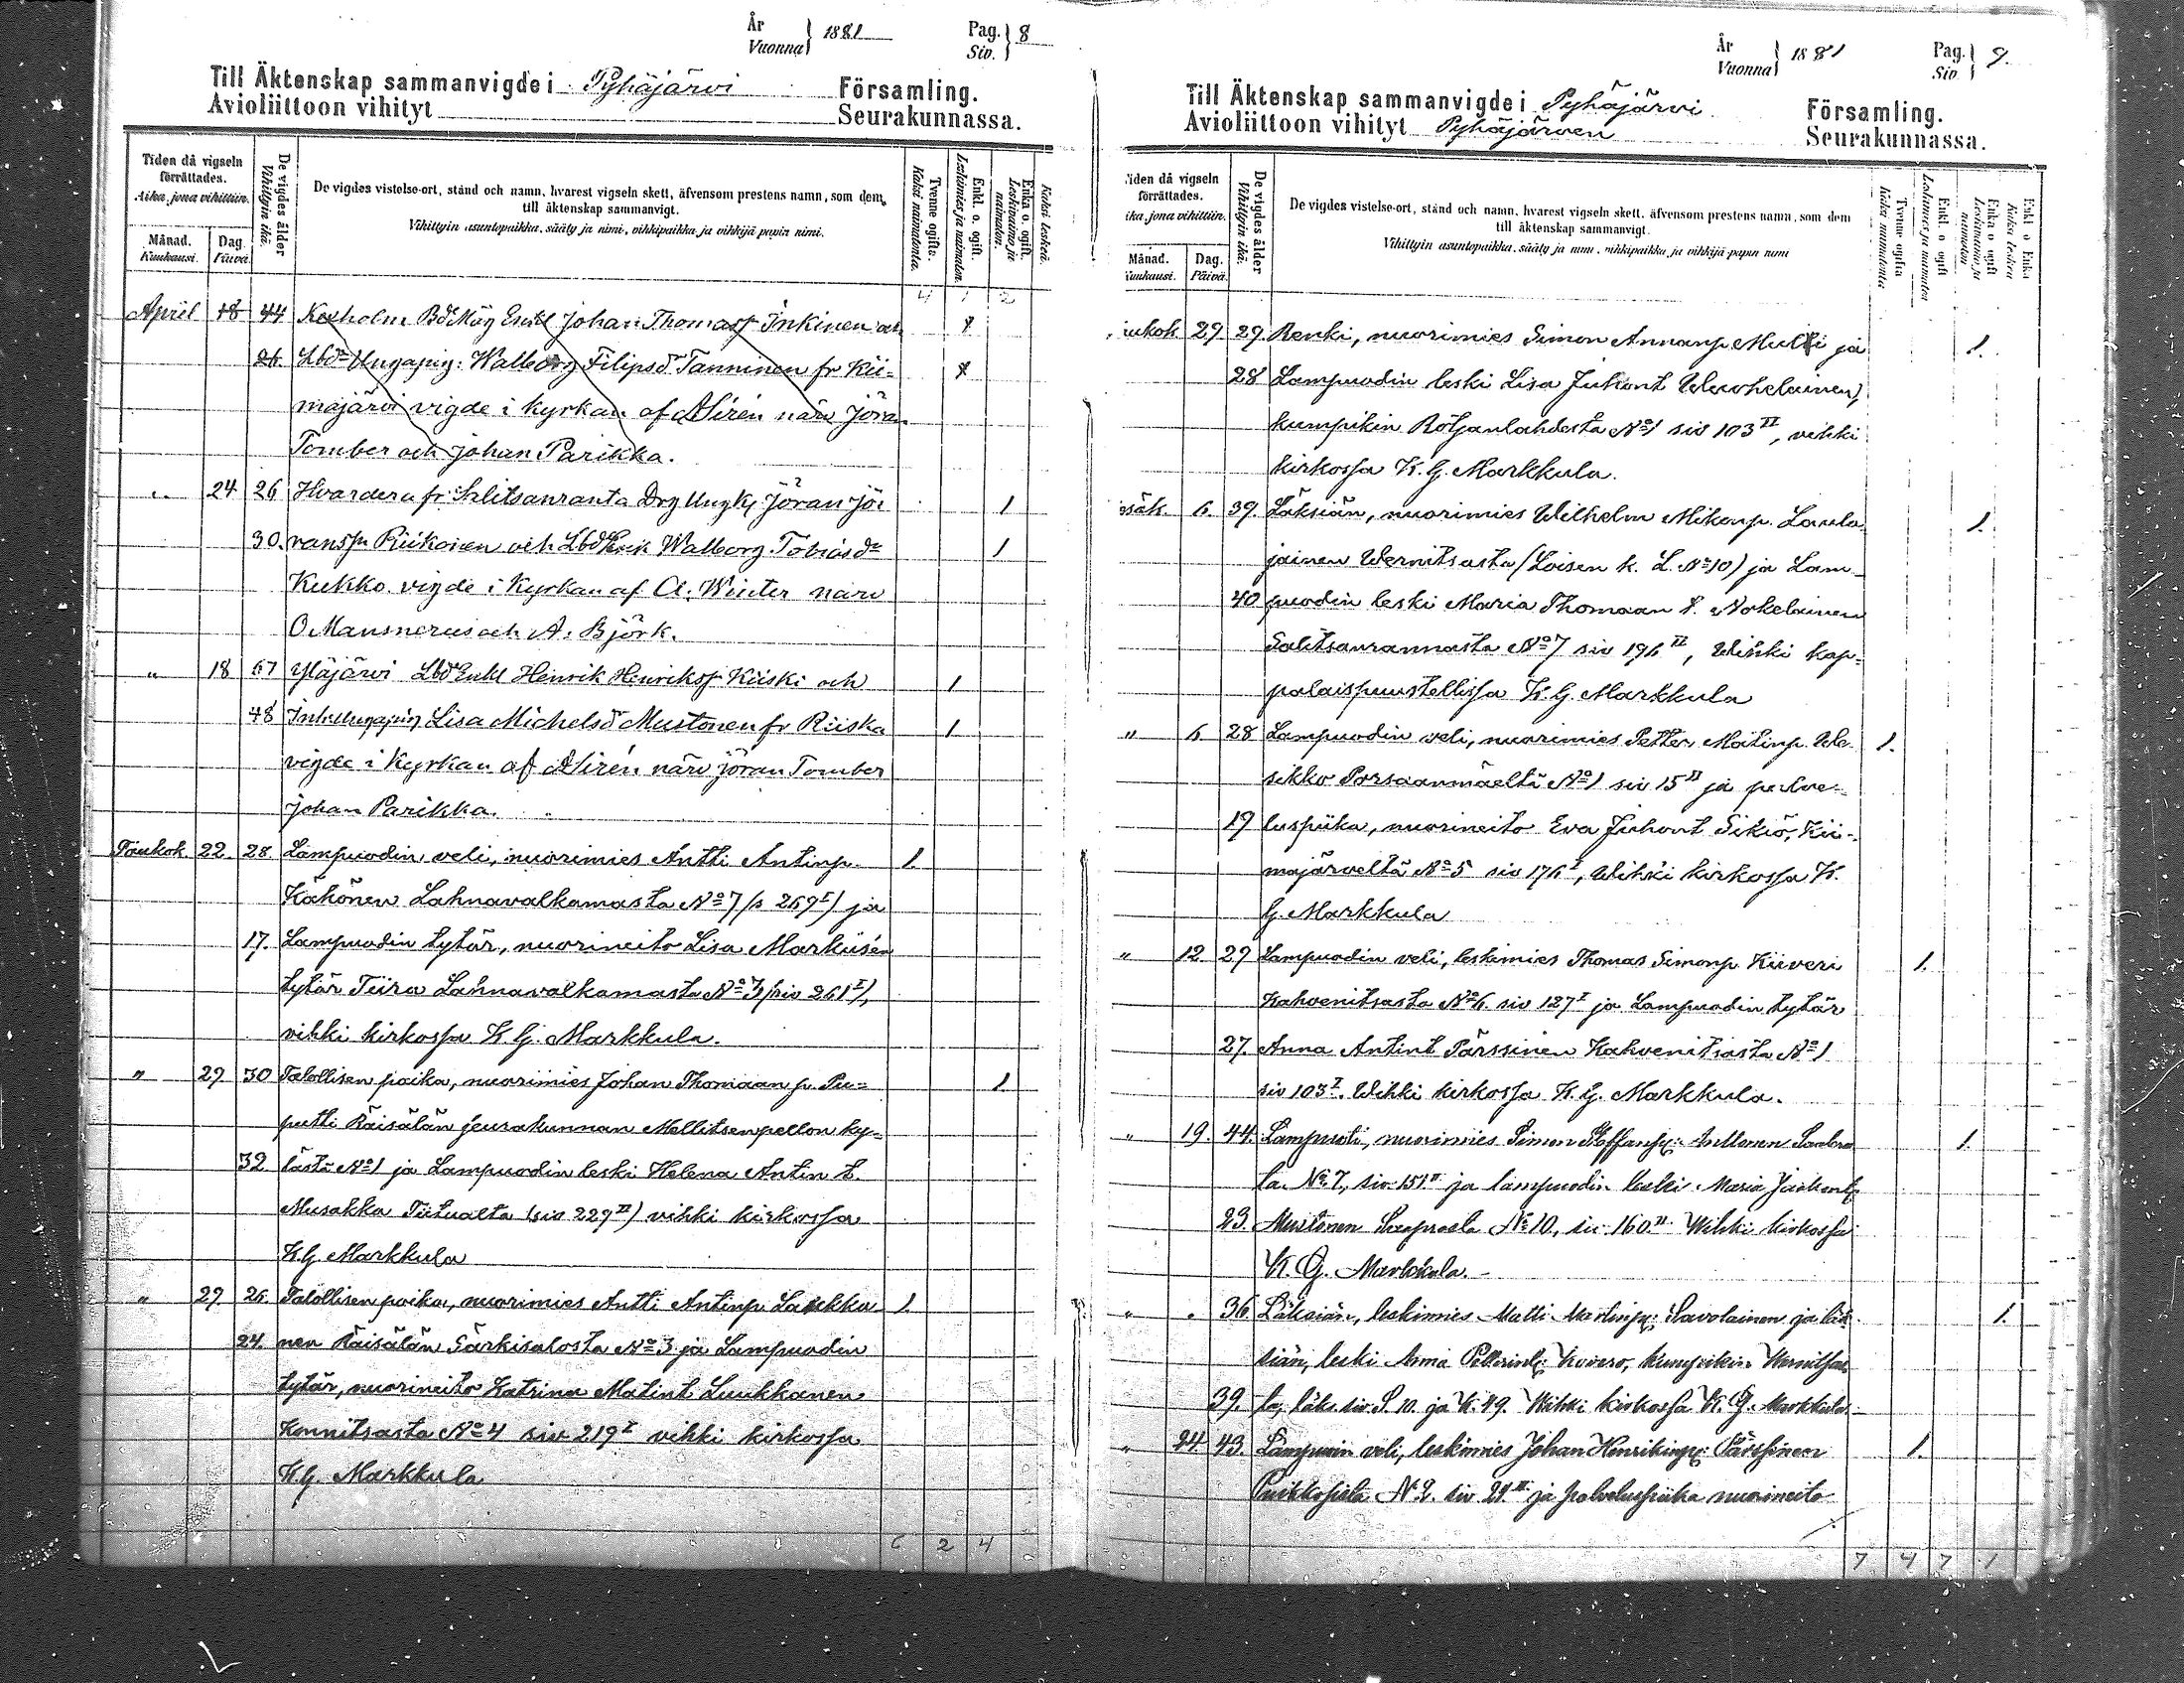 År
Vuonna } 1881
Pag.
Siv. } 8
Till Äktenskap sammanvigde i Pyhäjärvi Församling.
Avioliittoon vihityt Seurakunnassa.
Tiden då vigseln förrättades.
Aika, jona vihittiin.
Månad. Kuukausi.
Dag. Päivä.
De vigdes ålder
Vihittyin ikä.
De vigdes vistelse-ort, stånd och namn, hvarest vigseln skett, äfvensom prestens namn, som dem
till äktenskap sammanvigt.
Vihittyin asuntopaikka, sääty ja nimi, vihkipaikka ja vihkijä papin nimi.
Tvenne ogifta.
Kaksi naimatonta.
Enkl. o. ogift.
Leskimies ja naimaton.
Enka o. ogift.
Leskivaimo ja naimaton.
Kaksi leskeä.
4 1 2
April 18 44 Kexholm Johan Thomass Inkinen och 1
26 Ungapig: Walborg Filipsdr Tanninen fr Kii= 1
majärvi vigde i kyrkan af A Sirén närv Jöran
Tomber och Johan Parikka.
" 24 26 Hvardera fr Salitsanranta Drg Ungkl Jöran Jö= 1
30. ranssn Riikonen och Walborg Tobiasdr 1
Kukko vigde i Kyrkan af A. Winter narv
O Mansnerus och A. Björk.
" 18 67 Yläjärvi Lbd Enkl Henrik Henrikss Kiiski och 1
48 Lisa Michelsdr Mustonen fr Riiska 1
vigde i Kyrkan af A Sirén närv jöran Tomber
johan Parikka.
Toukok. 22. 28. Lampuodin veli, nuorimies Antti Antinp. 1.
Kähönen Lahnavalkamasta No 7 (s 269 I) ja
17. Lampuodin tytär, nuorineito Lisa Markuisén
tytär Tiira Lahnavalkamasta No 3 (siv 261 I),
vihki kirkossa K G. Markkula.
" 29 30 Talollisen poika, nuorimies Johan Thomaan p. Pu= 1
putti Räisälän seurakunnan Mellitsenpellon ky=
32 lästä No 1 ja Lampuodin leski Helena Antin t.
Musakka Tiitualta (siv 229 II) vihki kirkossa
K.G Markkula
" 29. 26. Talollisen poika, nuorimies Antti Antinp. Laukka 1.
24. nen Räisälän Särkisalosta No 3 ja Lampuodin
tytär, nuorineito Katrina Matint Luukkanen
Konnitsasta No 4 siv 219 I vihki kirkossa
K.G. Markkula
6 2 4
År
Vuonna } 1881
Pag.
Siv. } 9.
Till Äktenskap sammanvigde i Pyhäjärvi Församling.
Avioliittoon vihityt Pyhäjärven Seurakunnassa.
Tiden då vigseln förrättades.
ika, jona vihittiin.
Månad. Kuukausi.
Dag. Päivä.
De vigdes ålder
Vihittyin ikä.
De vigdes vistelse-ort, stånd och namn, hvarest vigseln skett, äfvensom prestens namn, som dem
till äktenskap sammanvigt.
Vihittyin asuntopaikka, sääty ja nimi, vihkipaikka ja vihkijä papin nimi
Tvenne ogifta
Kaksi naimatonta
Enkl. o ogift
Leskimies ja naimaton
Enka o ogift
Leskivaimo ja naimaton
Enkl o Enka
Kaksi leskeä
oukok 29 29. Renki, nuorimies Simon Annanp. Multi ja 1.
28 Lampuodin leski Lisa Juhont Wauhkelainen,
kumpikin Rötjanlahdesta No 1 siv 103 II, vihki
kirkossa K. G. Markkula.
esäk. 6. 39. Läksiän, nuorimies Wilhelm Mikonp. Laula 1.
jainen Wernitsasta (Loisen k. L. No 10) ja Lam=
40 puodin leski Maria Thomaan t. Nokelainen
Salitsanrannasta No 7 siv 196 II, Wihki kap=
palaispuustellissa K. G. Markkula
" 6 28 Lampuodin veli, nuorimies Petter Matinp. We= 1.
sikko Porsaanmäeltä No 1 siv 15 II ja palve=
19 luspiika, nuorineito Eva Juhont Sikiö, Kii=
majärveltä No 5 siv 176 I, Wihki kirkossa K.
G. Markkula
" 12. 29 Lampuodin veli, leskimies Thomas Simonp Kiiveri 1.
Kahvenitsasta No 6. siv 127 I ja Lampuodin tytär
27. Anna Antint Pärssinen Kahvenitsasta No 1
siv 103 I. Wihki kirkossa K. G. Markkula.
" 19. 44. Lampuoti, nuorimies Simon Staffanp: Inttonen 1.
la. No 7, siv. 151 II ja lampuodin leski Maria
23. Mustonen No 10, siv. 160 II. Wihki kirkossa
K. G. Markkula.
" " 36. Läksiän, leskimies Matti Martinp: Savolainen ja läk= 1.
siän, leski Anna Kovero, kumpikin Wernitsas=
39. ta, läks. siv. S. 10. ja K. 49. Wihki kirkossa K. G. Markkula
" 24. 43. Lampuoin veli, leskimies Johan Henrikinp: Pärssinen 1.
No 2. siv. 21 II ja palveluspiika nuorineito
7 4 7 1